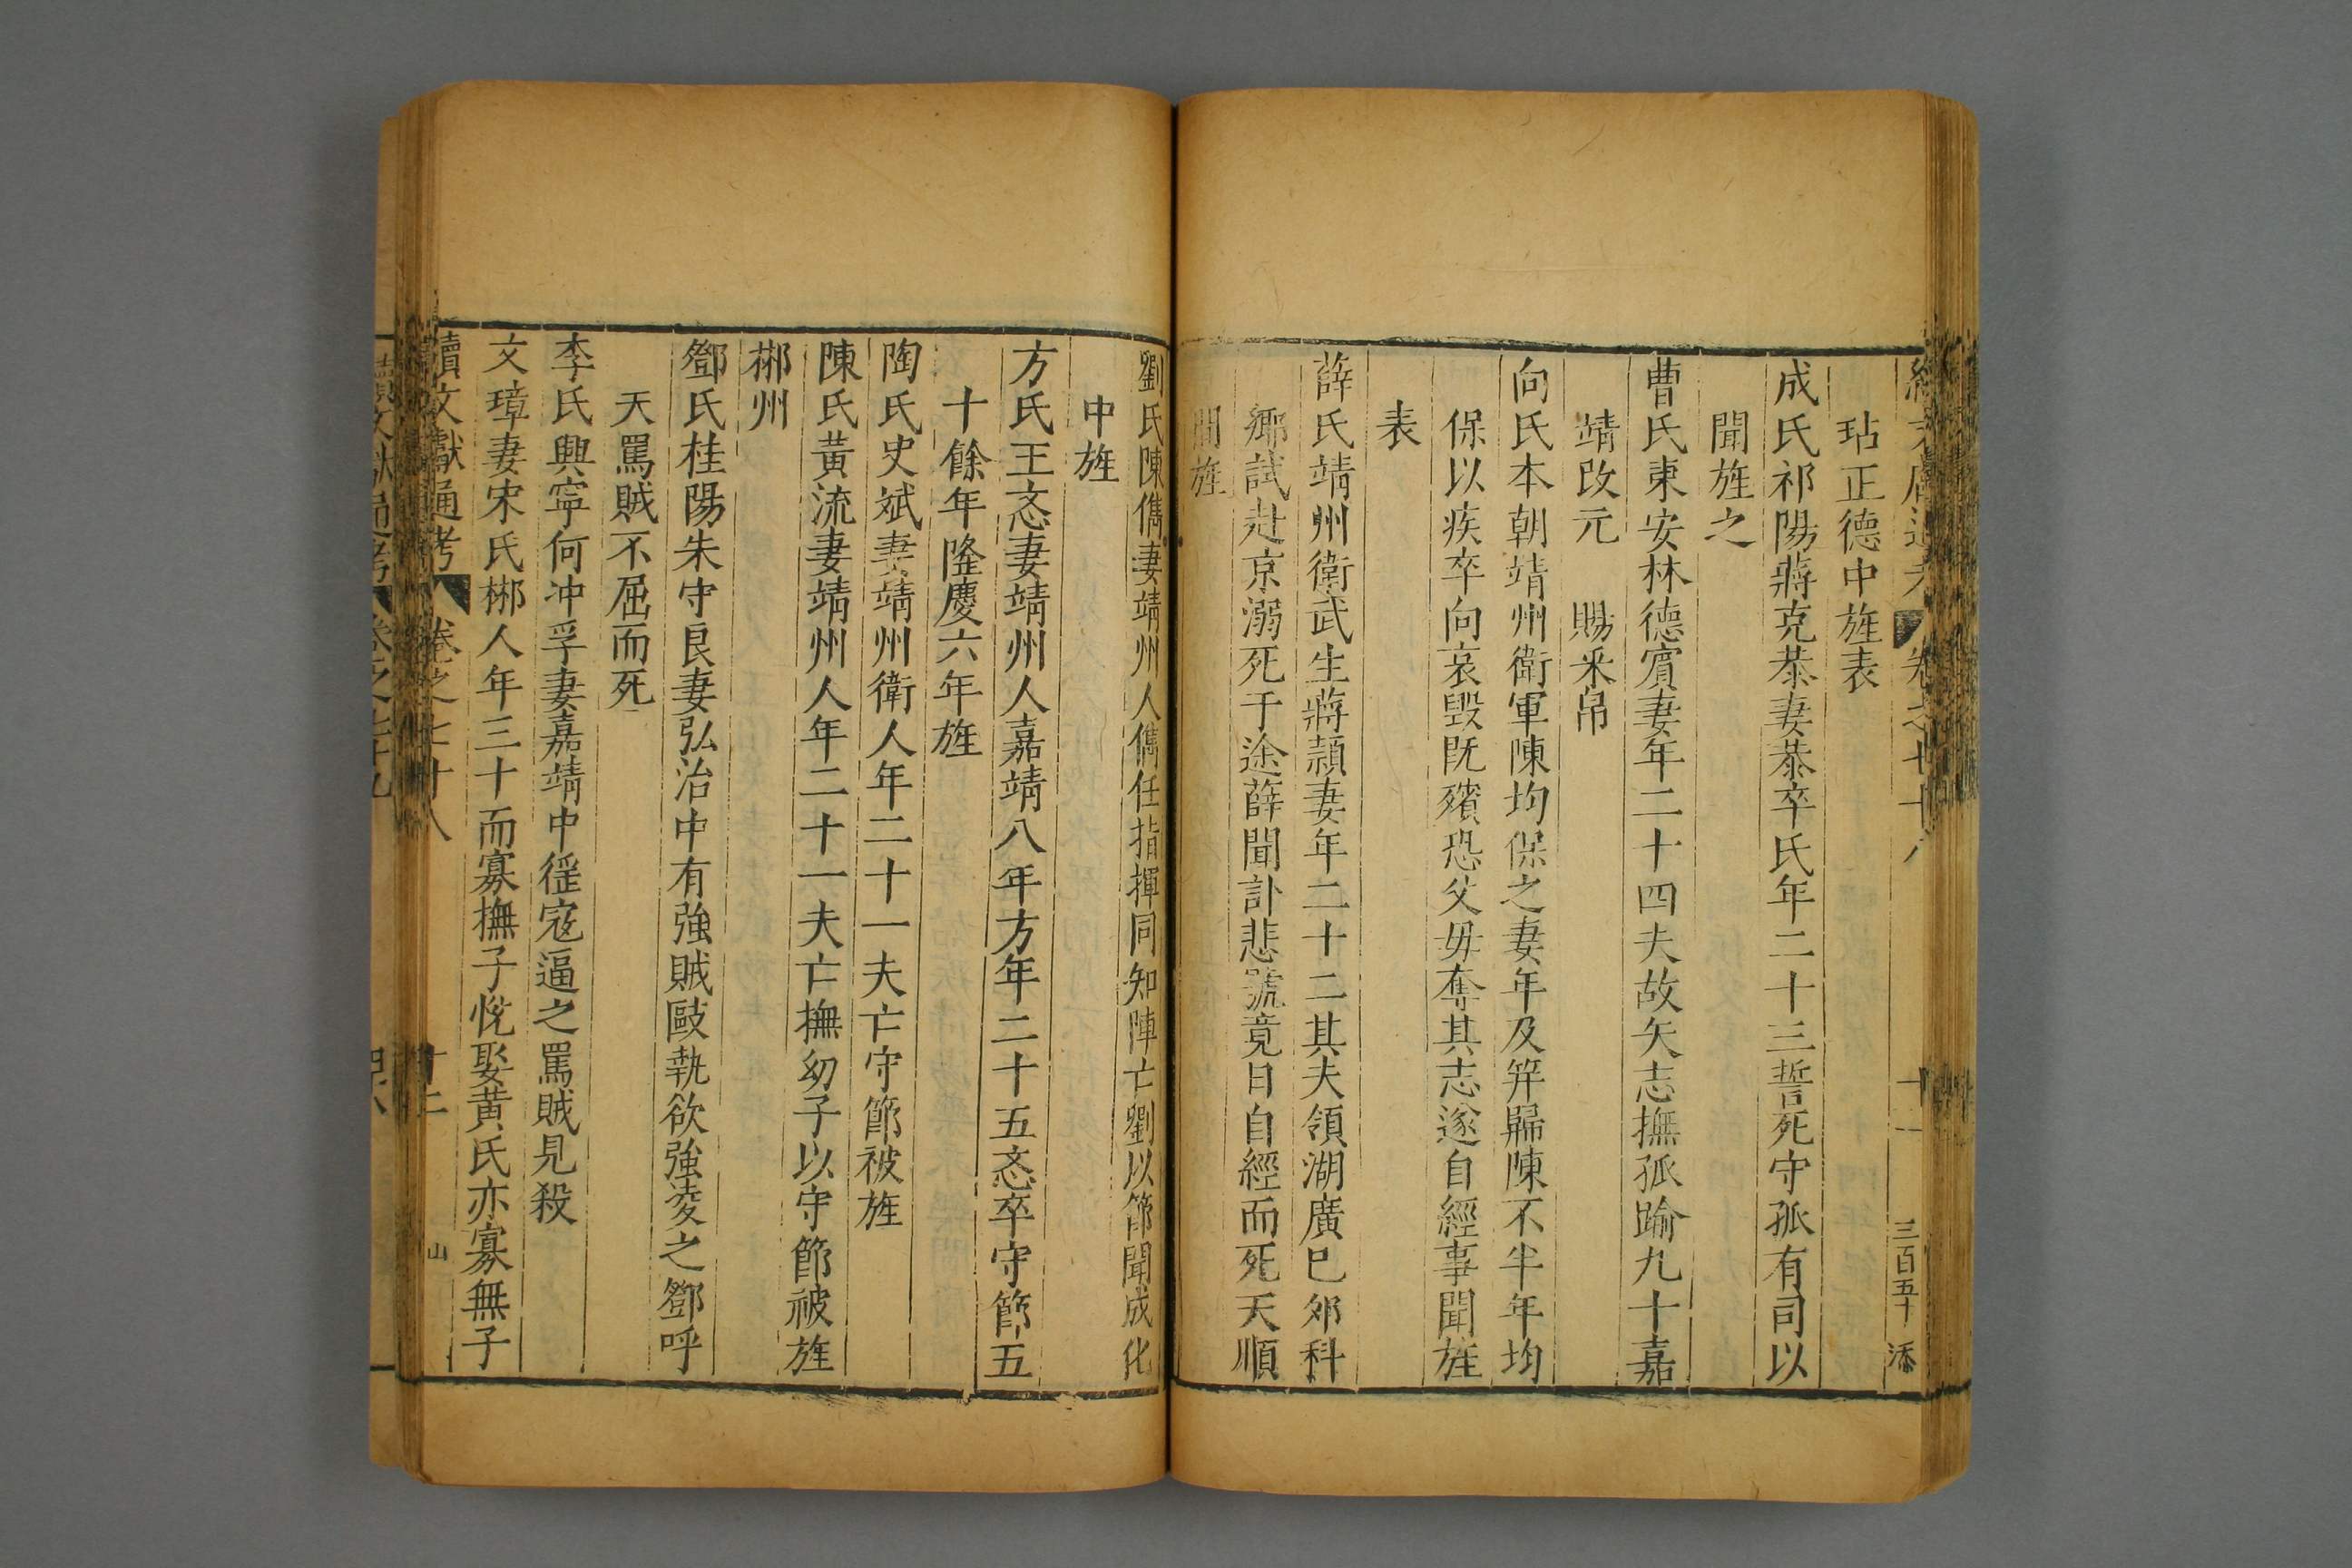 續文獻通考 卷之七十八 十二 三百五十 添
玷正德中旌表
成氏祁陽蔣克恭妻恭卒氏年二十三誓死守孤有司以
聞旌之
曹氏東安林德賓妻年二十四夫故矢志撫孤踰九十嘉
靖改元 賜釆帛
向氏本朝靖州衛軍陳均保之妻年及笄歸陳不半年均
保以疾卒向哀毀既殯恐父毋奪其志遂自經事聞旌
表
薛氏靖州衛武生蔣頴妻年二十二其夫領湖廣巳郊科
鄉試赴京溺死于途薛聞訃悲號竟日自經而死天順
間旌
劉氏陳儁妻靖州人儁任指揮同知陣亡劉以節聞成化
中旌
方氏王忞妻靖州人嘉靖八年方年二十五忞卒守節五
十餘年隆慶六年旌
陶氏史斌妻靖州衛人年二十一夫亡守節被旌
陳氏黃流妻靖州人年二十一夫亡撫幼子以守節被旌
郴州
鄧氏桂陽朱守良妻弘治中有強賊毆執欲強凌之鄧呼
天罵賊不屈而死
李氏興寧何冲孚妻嘉靖中徭寇逼之罵賊見殺
文璋妻宋氏郴人年三十而寡撫子悅娶黃氏亦寡無子
續文獻通考 卷之七十八 十二 山
續文獻通考 卷之七十九